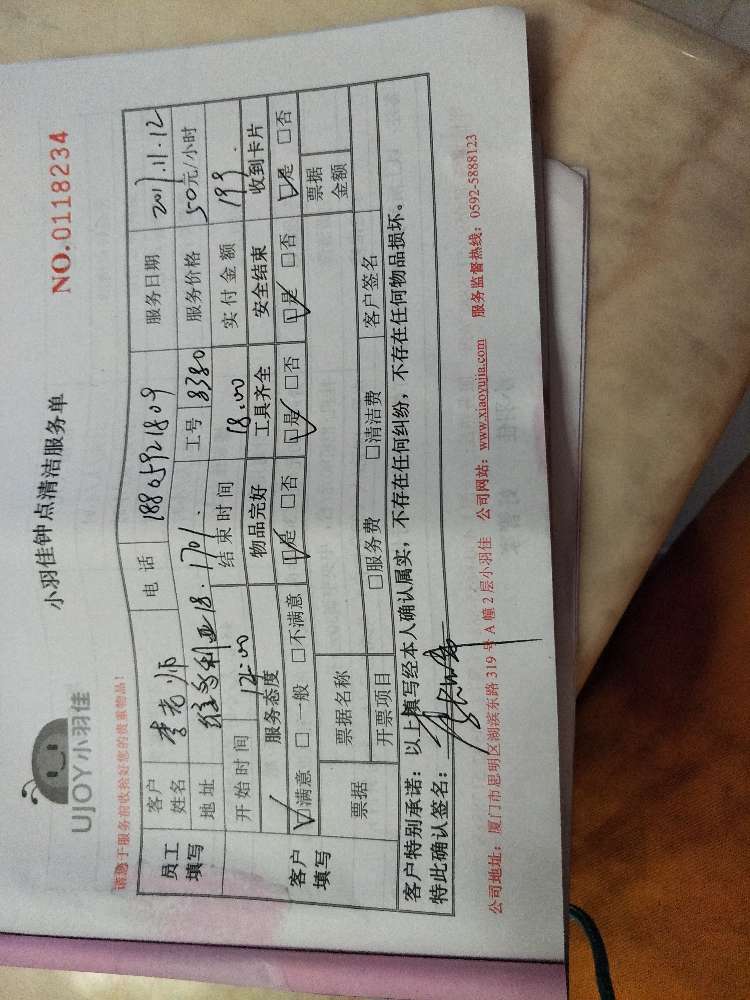 UJOY小羽佳
小羽佳钟点清洁服务单
NO.0118234
请您于服务前收拾好您的贵重物品!
员工填写
客户姓名 李老师 电话 18805921809 服务日期 2017.11.12
地址 维多利亚18.1701. 工号 8380 服务价格 50元/小时
开始时间 12:00 结束时间 18.00 实付金额 199
客户填写
服务态度 物品完好 工具齐全 安全结束 收到卡片
☑满意 □一般 □不满意 ☑是 □否 ☑是 □否 ☑是 □否 ☑是 □否
票据 票据名称 票据金额
开票项目 □服务费 □清洁费 客户签名
客户特别承诺:以上填写经本人确认属实,不存在任何纠纷,不存在任何物品损坏。
特此确认签名:
公司地址:厦门市思明区湖滨东路319号A幢2层小羽佳 公司网站:www.xiaoyujia.com 服务监督热线:0592-5888123